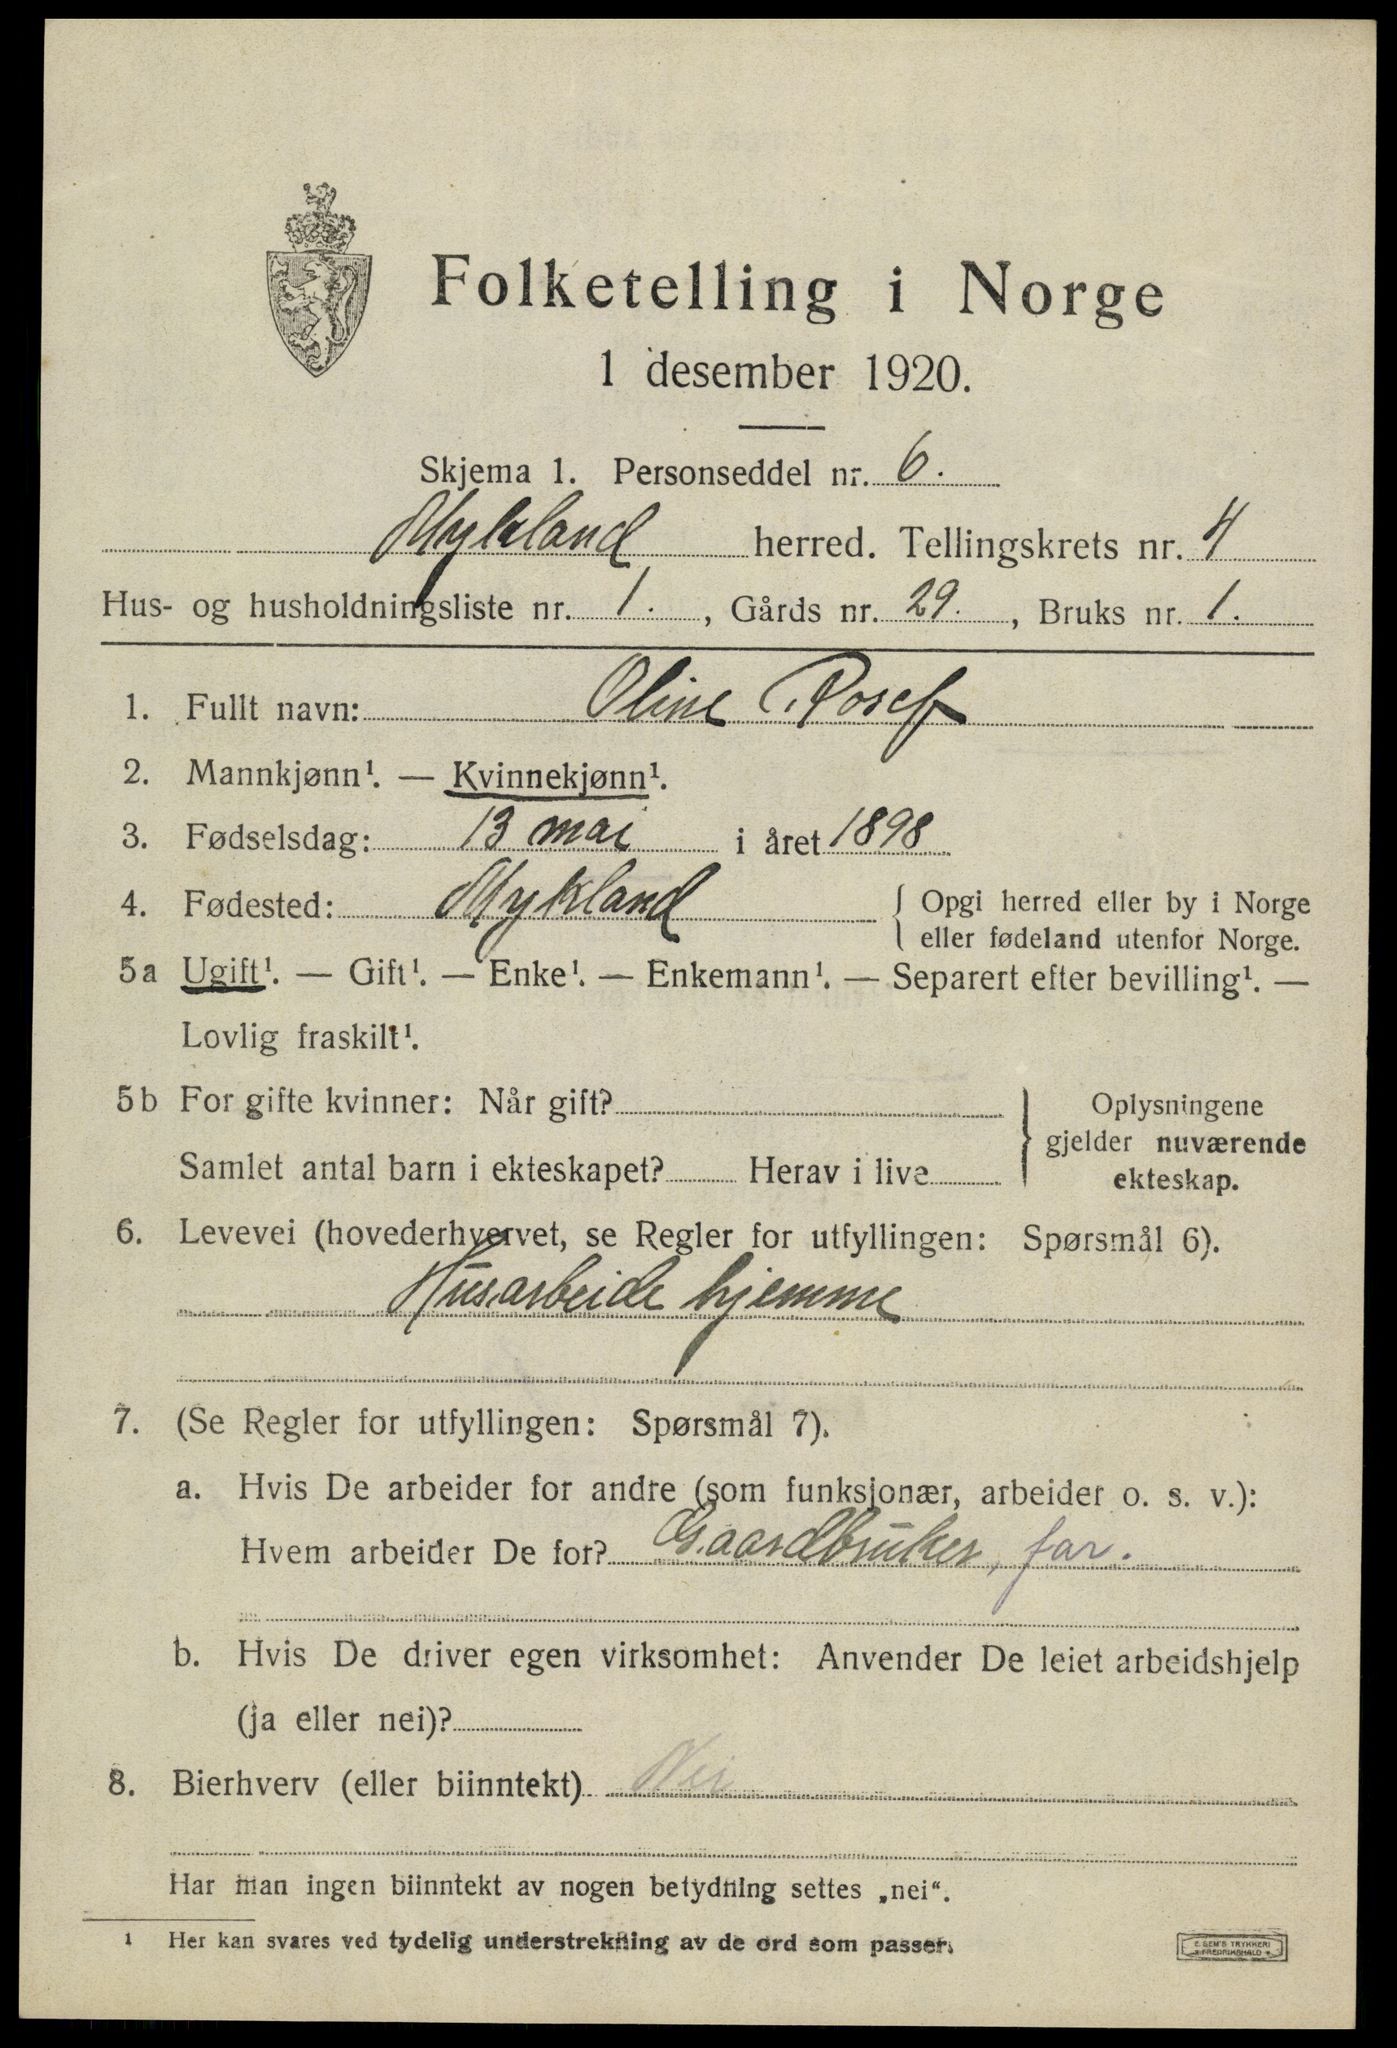 Folketelling i Norge
1 desember 1920.
Skjema 1. Personseddel nr. 6.
Mykland herred. Tellingskrets nr. 4
Hus- og husholdningsliste nr. 1., Gårds nr. 29., Bruks nr. 1.
1. Fullt navn: Oline Rosef
2. Mannkjønn¹. — Kvinnekjønn¹.
3. Fødselsdag: 13 mai i året 1898
4. Fødested: Mykland { Opgi herred eller by i Norge
eller fødeland utenfor Norge.
5a Ugift¹. — Gift¹. — Enke¹. — Enkemann¹. — Separert efter bevilling¹. —
Lovlig fraskilt¹.
5b For gifte kvinner: Når gift?
Samlet antal barn i ekteskapet? Herav i live
} Oplysningene
gjelder nuværende
ekteskap.
6. Levevei (hovederhvervet, se Regler for utfyllingen: Spørsmål 6).
Husarbeide hjemme
7. (Se Regler for utfyllingen: Spørsmål 7).
a. Hvis De arbeider for andre (som funksjonær, arbeider o. s. v.):
Hvem arbeider De for? Gaardbruker, far.
b. Hvis De driver egen virksomhet: Anvender De leiet arbeidshjelp
(ja eller nei)?
8. Bierhverv (eller biinntekt) Nei
Har man ingen biinntekt av nogen betydning settes „nei“.
1 Her kan svares ved tydelig understrekning av de ord som passer.
E. SEM'S TRYKKERI
FREDRIKSHALD